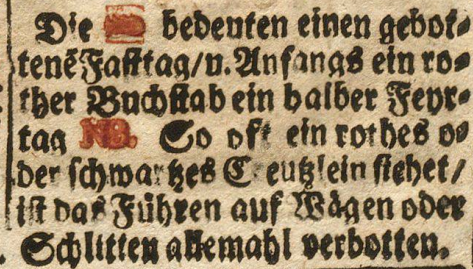 Die bedeuten einen gebot-
tenẽ Fasttag/ u. Anfangs ein ro-
ther Buchstab ein halber Feyr-
tag NB. So oft ein rothes o-
der schwartzes Creutzlein stehet/
ist das Führen auf Wägen oder
Schlitten allemahl verbotten.